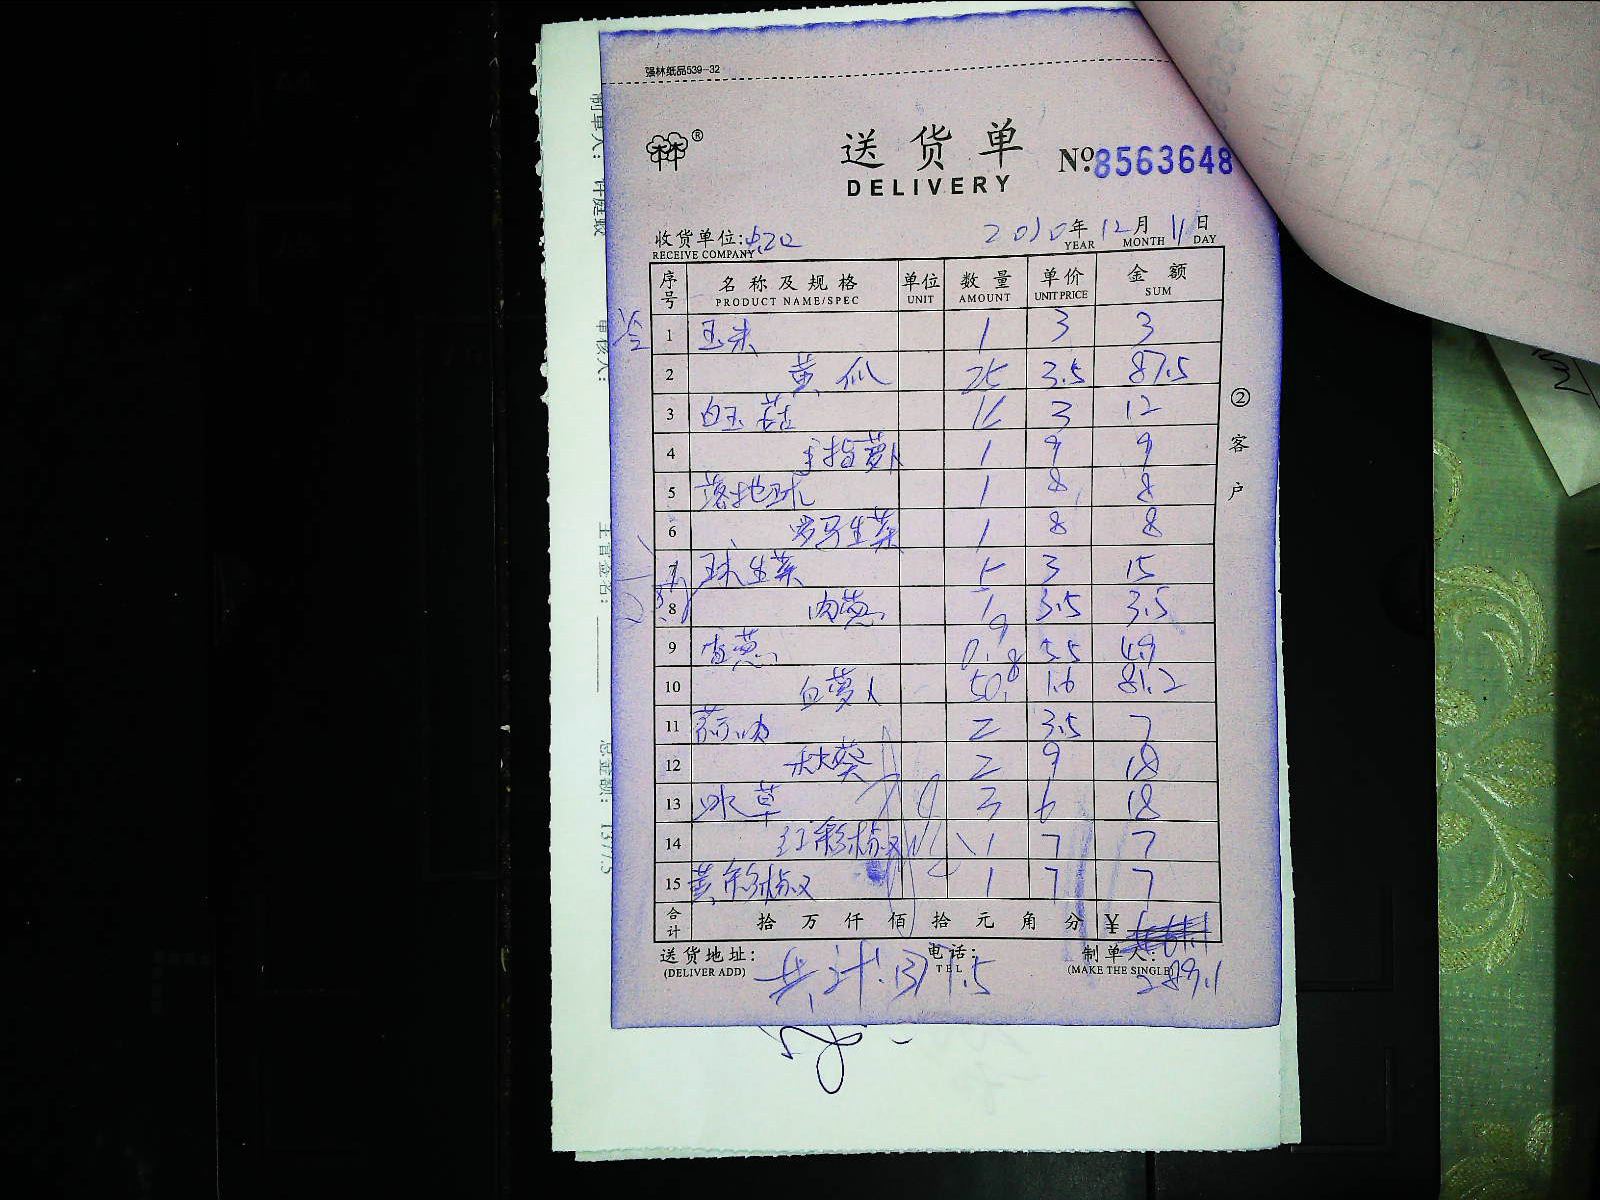 强林纸品539-32
送货单
DELIVERY
№ 8563648
收货单位:
RECEIVE COMPANY
2020年12月11日
YEAR MONTH DAY
序号 名称及规格 单位 数量 单价 金额
PRODUCT NAME/SPEC UNIT AMOUNT UNIT PRICE SUM
1 玉米 1 3 3
2 黄瓜 25 3.5 87.5
3 白玉菇 3 12
4 手指萝卜 1 9 9
5 落地球 1 8 8
6 罗马生菜 1 8 8
7 球生菜 5 3 15
8 肉葱 1 3.5 3.5
9 葱 0.9 5.5 4.9
10 白萝卜 50.8 1.6 81.2
11 2 3.5 7
12 秋葵 2 9 18
13 冰草 3 6 18
14 红彩椒 1 7 7
15 黄彩椒 1 7 7
合计 拾 万 仟 佰 拾 元 角 分 ¥
送货地址: 电话: 制单人:
(DELIVER ADD) TEL (MAKE THE SINGLE)
289.1
共计:
②客户
制单人:
审核人:
主管签名:
总金额: 1377.5